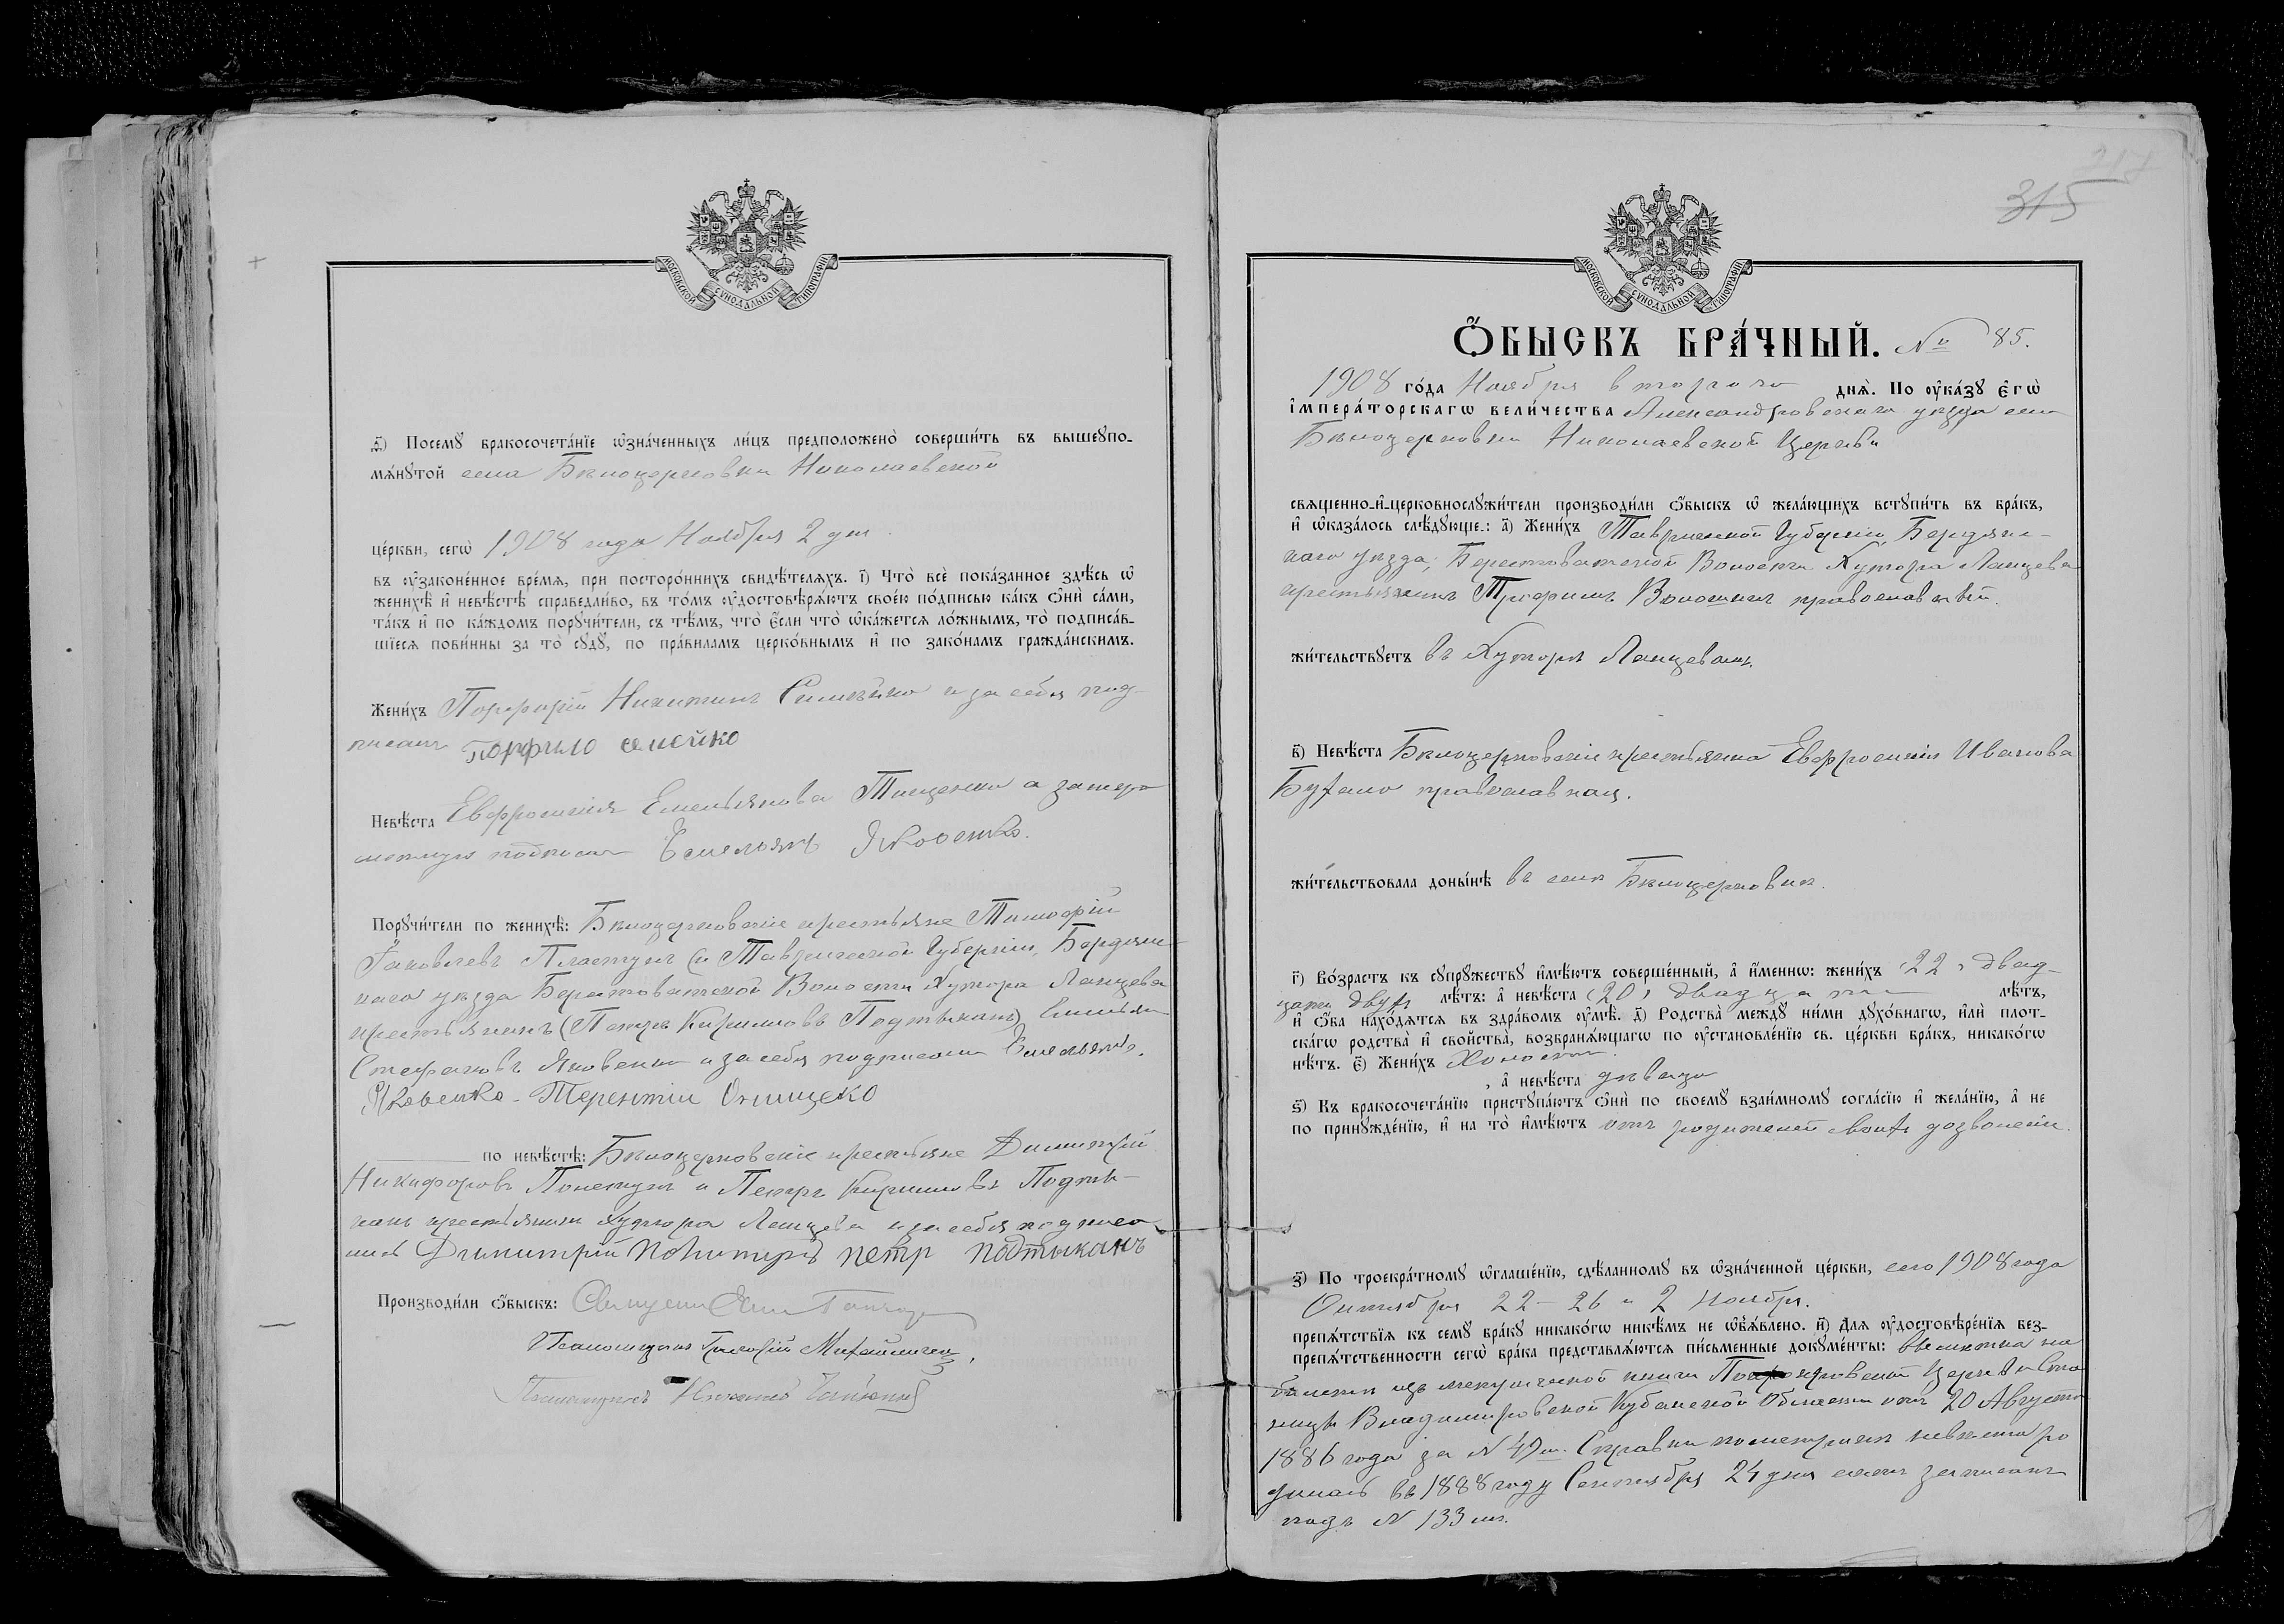 МОСКОВСКОЙ СУНОДАЛЬНОЙ ТИПОГРАФІИ
д҃) Посемꙋ бракосочета́нїе ѡ҆зна́ченныхъ ли́цъ предположено̀ соверши́ть въ вышеꙋпо-
мѧ́нꙋтой села Бѣлоцерковки Николаевской
це́ркви, сегѡ̀ 1908 года Ноября 2 дня
въ ᲂу҆законе́нное вре́мѧ, при посторо́ннихъ свидѣ́телѧхъ. і҃) Что̀ всѐ пока́занное здѣ́сь ѡ҆
женихѣ̀ и҆ невѣ́стѣ справедли́во, въ то́мъ ᲂу҆достовѣрѧ́ютъ свое́ю по́дписью ка́къ ѻ҆нѝ са́ми,
та́къ и҆ по ка́ждомъ порꙋчи́тели, съ тѣ́мъ, что̀ є҆́сли что̀ ѡ҆ка́жетсѧ ло́жнымъ, то̀ подписа́в-
шїесѧ пови́нны за то̀ сꙋдꙋ̀, по пра́виламъ церко́внымъ и҆ по зако́намъ гражда́нскимъ.
Жени́хъ Порфирій Никитинъ и за себя под-
писалъ Порфило семейко
Невѣ́ста Евфросинія Емельянова Тищенко а за неро
подписалъ Емельянъ Яковенко.
Порꙋчи́тели по женихѣ̀: Бѣлоцерковскіе крестьяне Тимофій
Яковлевъ Пластунъ (и Таврической Губерніи, Бердян-
наго уѣзда Берестоватской Волости Хутора Ланцева
крестьянинъ (Петръ Кириловъ Подтыканъ) Емельян
Стефановъ Яковенко и за себя подписали Емельянъ
Яковенко. Терентіи Онищеко
по невѣ́стѣ: Бѣлоцерковскіе крестьяне Димитрій
Никифоровъ и Петръ Кириловъ Подты-
канъ крестьянин Хутора Ланцева и за себя подписа-
лись Димитрій петр подтыканъ
Производи́ли ѻ҆́быскъ: Священн
Псаломщикъ Григорій Михайличенко
Псаломщикъ
315
МОСКОВСКОЙ СУНОДАЛЬНОЙ ТИПОГРАФІИ
Ѻ҆́БЫСКЪ БРА́ЧНЫЙ. № 85.
1908 го́да Ноября второго днѧ̀. По ᲂу҆ка́зꙋ є҆гѡ̀
і҆мпера́торскагѡ вели́чества Александровскаго уѣзда села
Бѣлоцерковки Николаевской Церкви
свѧщенно-и҆-церковнослꙋжи́тели производи́ли ѻ҆́быскъ ѡ҆ жела́ющихъ встꙋпи́ть въ бра́къ,
и҆ ѡ҆каза́лось слѣ́дꙋющее: а҃) Жени́хъ Таврической Губерніи, Бердянс-
каго уѣзда, Берестоватской Волости Хутора Ланцева
крестьянинъ Трофимъ Волошинъ православный.
жи́тельствꙋетъ въ Хуторѣ Ланцевомъ.
в҃) Невѣ́ста Бѣлоцерковскія крестьянка Евфросинія Иванова
православная.
жи́тельствовала доны́нѣ въ селѣ Бѣлоцерковкѣ.
г҃) Во́зрастъ къ сꙋпрꙋ́жествꙋ и҆мѣ́ютъ соверше́нный, а҆ и҆́меннѡ: жени́хъ (22) двад-
цати двухъ лѣ́тъ: а҆ невѣ́ста (20) двадцати лѣ́тъ,
и҆ ѻ҆́ба нахо́дѧтсѧ въ здра́вомъ ᲂу҆мѣ̀. д҃) Родства̀ междꙋ̀ ни́ми дꙋхо́внагѡ, и҆лѝ плот-
ска́гѡ родства̀ и҆ свойства̀, возбранѧ́ющагѡ по ᲂу҆становле́нїю св. це́ркви бра́къ, никако́гѡ
нѣ́тъ. є҃) Жени́хъ Холостъ.
, а҆ невѣ́ста дѣвица
ѕ҃) Къ бракосочета́нїю пристꙋпа́ютъ ѻ҆нѝ по своемꙋ̀ взаи́мномꙋ согла́сїю и҆ жела́нїю, а҆ не
по принꙋжде́нїю, и҆ на то̀ и҆мѣ́ютъ отъ родителей своихъ дозволеніе.
з҃) По троекра́тномꙋ ѡ҆глаше́нїю, сдѣ́ланномꙋ въ ѡ҆зна́ченной це́ркви, сего 1908 года
Октября 22 – 26 и 2 Ноября.
препѧ́тствїѧ къ семꙋ̀ бра́кꙋ никако́гѡ никѣ́мъ не ѡ҆б̾ѧ́влено. и҃) Длѧ ᲂу҆достовѣре́нїѧ без-
препѧ́тственности сегѡ̀ бра́ка представлѧ́ютсѧ пи́сьменные докꙋме́нты:
изъ метрической книги Церкви Ста
ницы Владимировской Кубанской Области отъ 20 Августа
1886 года за № 49м. Справки по метрикѣ невѣста ро
дилась въ 1888 году Сентября 24 дня записанъ
подъ № 133 м.